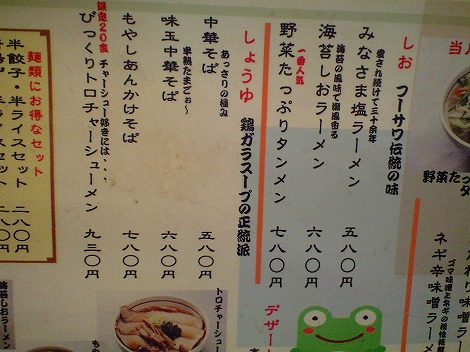 当
人
ネギ辛味噌ラーメン
野菜たっ
しお
フーサワ伝統の味
愛され続けて三十余年
みなさま塩ラーメン 五八〇円
海苔の風味で潮風香る
海苔しおラーメン 六八〇円
一番人気
野菜たっぷりタンメン 七八〇円
しょうゆ
鶏ガラスープの正統派
あっさりの極み
中華そば 五八〇円
半熟たまごぉ〜
味玉中華そば 六八〇円
もやしあんかけそば 七八〇円
限定20食 チャーシュー好きには・・・
びっくりトロチャーシューメン 九三〇円
麺類にお得なセット
半餃子・半ライスセット 二八〇円
デザー
トロチャーシュー
海苔しおラーメン